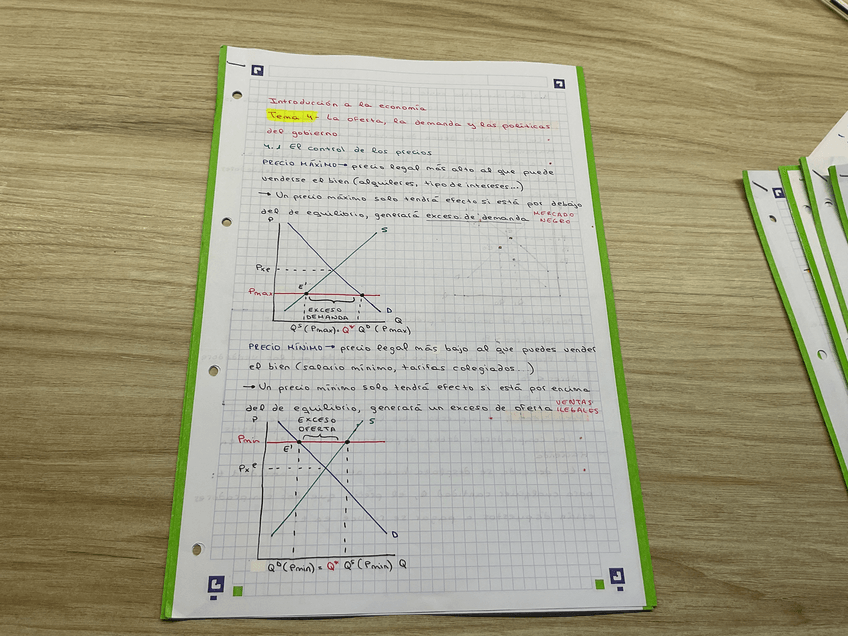 Introducción a la economía
Tema 4- La oferta, la demanda y las políticas
del gobierno
4.1 El control de los precios
PRECIO MÁXIMO → precio legal más alto al que puede
venderse el bien (alquileres, tipo de intereses...)
→ Un precio máximo solo tendrá efecto si está por debajo
del de equilibrio, generará exceso de demanda MERCADO NEGRO
P
S
Pxe
E'
Pmax
EXCESO
DEMANDA
D
Q
Qs (Pmax) = Q* QD (Pmax)
PRECIO MÍNIMO → precio legal más bajo al que puedes vender
el bien (salario mínimo, tarifas colegiados...)
→ Un precio mínimo solo tendrá efecto si está por encima
del de equilibrio, generará un exceso de oferta VENTAS ILEGALES
P
EXCESO
OFERTA
S
Pmin
E'
Pxe
D
QD (Pmin) = Q* Qs (Pmin) Q